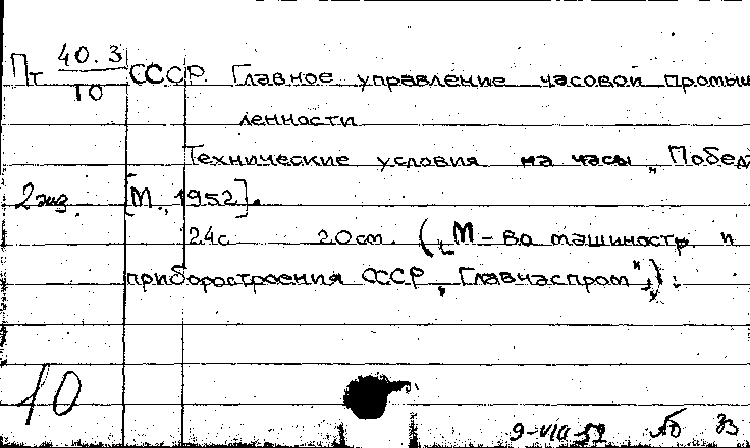 Пт 40.3/10 СССР. Главное управление часовой промыш
ленности
Технические условия на часы „Побед
2 экз. [М., 1952].
24с 20см. („М-во машиностр. и
приборостроения СССР „Главчаспром").
10
9-VIII-52